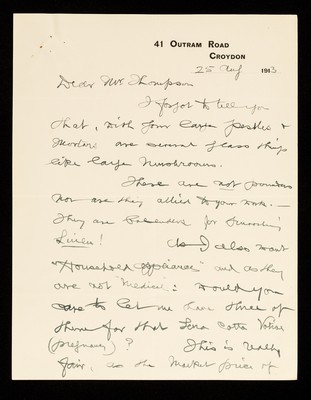 41 OUTRAM ROAD
CROYDON
25 Aug 1913
Dear Mr Thompson
I forgot to tell you
that, with some large pestles &
mortars are several glass things
like large mushrooms.
These are not pounders
nor are they allied to your work. —
They are Calenders for smoothing
Linen! As I also want
"Household appliances" and as they
are not "Medical": would you
care to let me have three of
them for that Terra cotta Votive
(pregnancy) ? This is really
fair, as the market price of